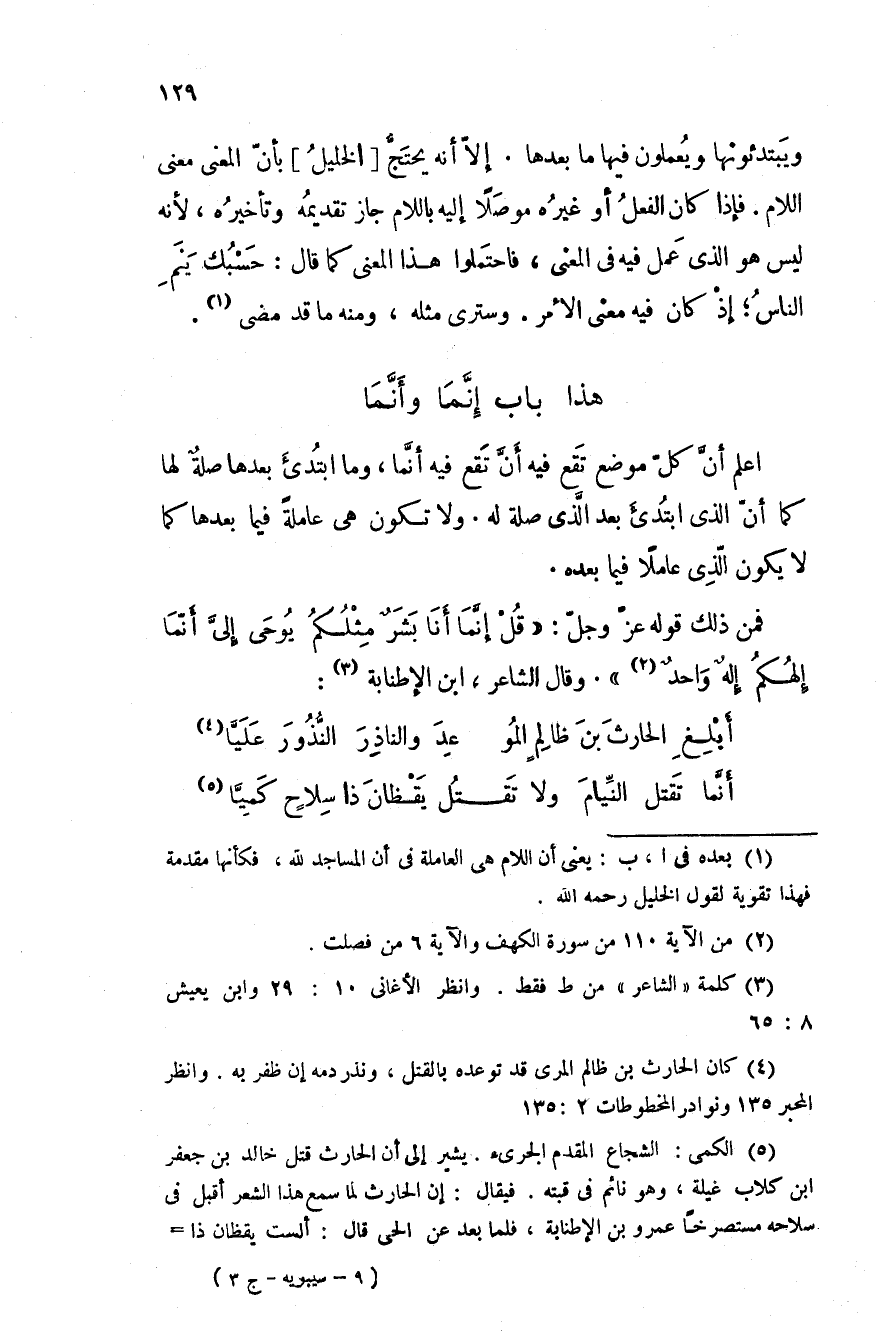 ١٢٩
ويَبتدئونها ويُعملون فيها ما بعدها . إلاّ أنه يحتَجُّ [ الخليلُ ] بأنّ المعنى معنى
اللام . فإذا كان الفعلُ أو غيرُه موصَلًا إليه باللام جاز تقديمُه وتأخيرُه ، لأنه
ليس هو الذى عَمل فيه فى المعنى ، فاحتَملوا هـذا المعنى كما قال : حَسْبُك يَنَمِ
الناسُ؛ إذْ كان فيه معنى الأمر . وسترى مثله ، ومنه ما قد مضى (١) .
هذا باب إنَّمَا وأَنَّمَا
اعلم أنَّ كلّ موضع تَقع فيه أَنَّ تَقع فيه أنَّما ، وما ابتُدئَ بعدها صلةٌ لها
كما أنّ الذى ابتُدئَ بعد الَّذى صلة له . ولا تـكون هى عاملةً فيما بعدها كما
لا يكون الّذِى عاملًا فيما بعده .
فمن ذلك قوله عزّ وجلّ : « قُلْ إنَّمَا أَنَا بَشَرٌ مِثْلُـكُمُ يُوحَى إلىَّ أَنّمَا
إلهُـكُمُ إلهٌ وَاحدٌ (٢) » . وقال الشاعر ، ابن الإطنابة (٣) :
أَبْلِـغِ الحارثَ بنَ ظالِمٍ المُو عِدَ والناذِرَ النُّذُورَ عَلَيَّا (٤)
أَنَّما تَقتل النِّيامَ ولا تَقـــتُل يَقْـظانَ ذا سِلاحٍ كَمِيَّا (٥)
(١) بعده فى ا ، ب : يعنى أن اللام هى العاملة فى أن المساجد لله ، فكأنها مقدمة
فهذا تقوية لقول الخليل رحمه الله .
(٢) من الآية ١١٠ من سورة الكهف والآية ٦ من فصلت .
(٣) كلمة « الشاعر » من ط فقط . وانظر الأغانى ١٠ : ٢٩ وابن يعيش
٨ : ٦٥
(٤) كان الحارث بن ظالم المرى قد توعده بالقتل ، ونذر دمه إن ظفر به . وانظر
المحبر ١٣٥ ونوادر المخطوطات ٢ : ١٣٥
(٥) الكمى : الشجاع المقدم الجرىء . يشير إلى أن الحارث قتل خالد بن جعفر
ابن كلاب غيلة ، وهو نائم فى قبته . فيقال : إن الحارث لما سمع هذا الشعر أقبل فى
سلاحه مستصرخـًا عمرو بن الإطنابة ، فلما بعد عن الحى قال : ألست يقظان ذا =
( ٩ – سيبويه – ج ٣ )